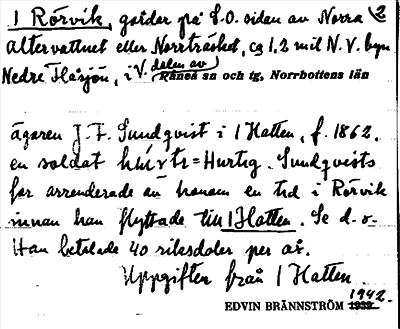 1 Rörvik, gårdar på S.O. sidan av Norra (2
Altervattnet eller Norrträsket, ca 1.2 mil N.V. byn
Nedre Flåsjön, i V. delen av Råneå sn och tg, Norrbottens län
ägaren J. F. Sundqvist i 1 Hatten, f. 1862,
en soldat = Hurtig. Sundqvists
far arrenderade av honom en tid i Rörvik
innan han flyttade till 1 Hatten. Se d. o.
Han betalade 40 riksdaler per år.
Uppgifter från 1 Hatten.
EDVIN BRÄNNSTRÖM 1939 1942.